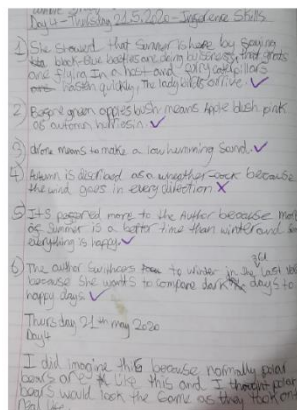 Day 4 - Thursday 21.5.2020 - Inference Skills
1) She showed that Summer is here by saying
black-Blue beetles are doing business, that gnats
are flying In a host and furry caterpillars
hasten quickly, The lady birds arrive.
2) Before green apples blush means Apple blush pink
as autumn burns in.
3) drone means to make a low humming sound.
4) Autumn is described as a weather cock because
the wind goes in every direction
5) It's important more to the Author because
of Summer is a better time than winter and
everything is happy.
6) The author to winter in the last
because She wants to compare dark days to
happy days
Thursday 21th may 2020
Day 4
I did imagine this because normally polar
bears are like this and I thought polar
bears would look the same as they took on